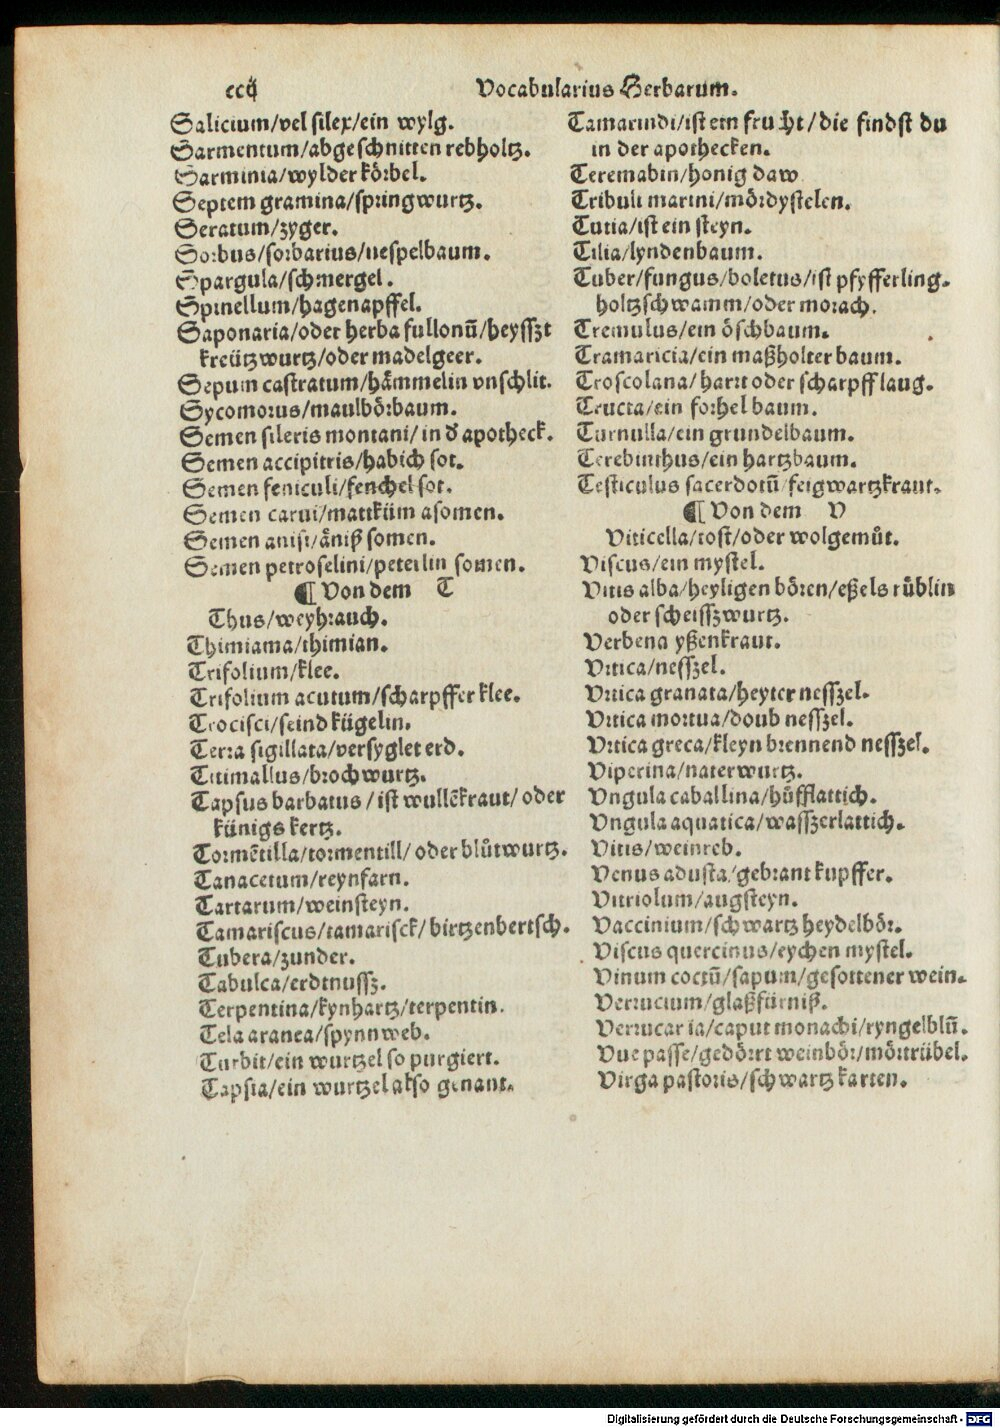 ccij Vocabularius Herbarum.
Salicium/vel silex/ein wylg.
Sarmentum/abgeschnitten rebholtz.
Sarminia/wylder körbel.
Septem gramina/springwurtz.
Seratum/zyger.
Sorbus/sorbarius/nespelbaum.
Spargula/schmergel.
Spinellum/hagenapffel.
Saponaria/oder herba fullonū/heysszt
kreützwurtz/oder madelgeer.
Sepum castratum/hämmelin vnschlit.
Sycomorus/maulbörbaum.
Semen sileris montani/in d̕ apotheck.
Semen accipitris/habich sot.
Semen feniculi/fenchel sot.
Semen carui/mattküm asomen.
Semen anisi/äniß somen.
Semen petroselini/peterlin somen.
¶ Von dem T
Thus/weyhrauch.
Thimiama/thimian.
Trifolium/klee.
Trifolium acutum/scharpffer klee.
Trocisci/seind kügelin.
Terra sigillata/versyglet erd.
Titimallus/brochwurtz.
Tapsus barbatus/ist wullēkraut/oder
künigs kertz.
Tormētilla/tormentill/oder blůtwurtz.
Tanacetum/reynfarn.
Tartarum/weinsteyn.
Tamariscus/tamarisck/birtzenbertsch.
Tubera/zunder.
Tabulca/erdtnussz.
Terpentina/kynhartz/terpentin.
Tela aranea/spynnweb.
Turbit/ein wurtzel so purgiert.
Tapsia/ein wurtzel also genant.
Tamarindi/ist ein frucht/die findst du
in der apothecken.
Teremabin/honig daw
Tribuli marini/mördystelen.
Tutia/ist ein steyn.
Tilia/lyndenbaum.
Tuber/fungus/boletus/ist pfyfferling.
holtzschwamm/oder morach.
Tremulus/ein öschbaum.
Tramaricia/ein maßholter baum.
Troscolana/hartt oder scharpff laug.
Tructa/ein forhel baum.
Turnulla/ein grundelbaum.
Terebinthus/ein hartzbaum.
Testiculus sacerdotū/feigwartzkraut.
¶ Von dem V
Viticella/rost/oder wolgemůt.
Viscus/ein mystel.
Vitis alba/heyligen bören/eßels rüblin
oder scheisszwurtz.
Verbena yßenkraut.
Vrtica/nesszel.
Vrtica granata/heyter nesszel.
Vrtica mortua/doub nesszel.
Vrtica greca/kleyn brennend nesszel.
Viperina/naterwurtz.
Vngula caballina/hůfflattich.
Vngula aquatica/wasszerlattich.
Vitis/weinreb.
Venus adusta/gebrant kupffer.
Vitriolum/augsteyn.
Vaccinium/schwartz heydelbör.
Viscus quercinus/eychen mystel.
Vinum coctū/sapum/gesottener wein.
Vernicium/glaßfürniß.
Verrucaria/caput monachi/ryngelblů̄.
Vue passe/gedörrt weinbör/mörtrübel.
Virga pastoris/schwartz karten.
Digitalisierung gefördert durch die Deutsche Forschungsgemeinschaft - DFG